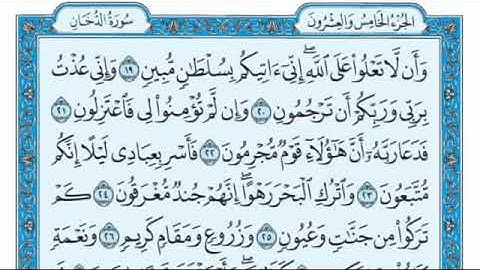 الجزء الخامس والعشرون سورة الدخان
وَأَن لَّا تَعْلُوا۟ عَلَى ٱللَّهِ ۖ إِنِّىٓ ءَاتِيكُم بِسُلْطَـٰنٍ مُّبِينٍ ١٩ وَإِنِّى عُذْتُ
بِرَبِّى وَرَبِّكُمْ أَن تَرْجُمُونِ ٢٠ وَإِن لَّمْ تُؤْمِنُوا۟ لِى فَٱعْتَزِلُونِ ٢١
فَدَعَا رَبَّهُۥٓ أَنَّ هَـٰٓؤُلَآءِ قَوْمٌ مُّجْرِمُونَ ٢٢ فَأَسْرِ بِعِبَادِى لَيْلًا إِنَّكُم
مُّتَّبَعُونَ ٢٣ وَٱتْرُكِ ٱلْبَحْرَ رَهْوًا ۖ إِنَّهُمْ جُندٌ مُّغْرَقُونَ ٢٤ كَمْ
تَرَكُوا۟ مِن جَنَّـٰتٍ وَعُيُونٍ ٢٥ وَزُرُوعٍ وَمَقَامٍ كَرِيمٍ ٢٦ وَنَعْمَةٍ